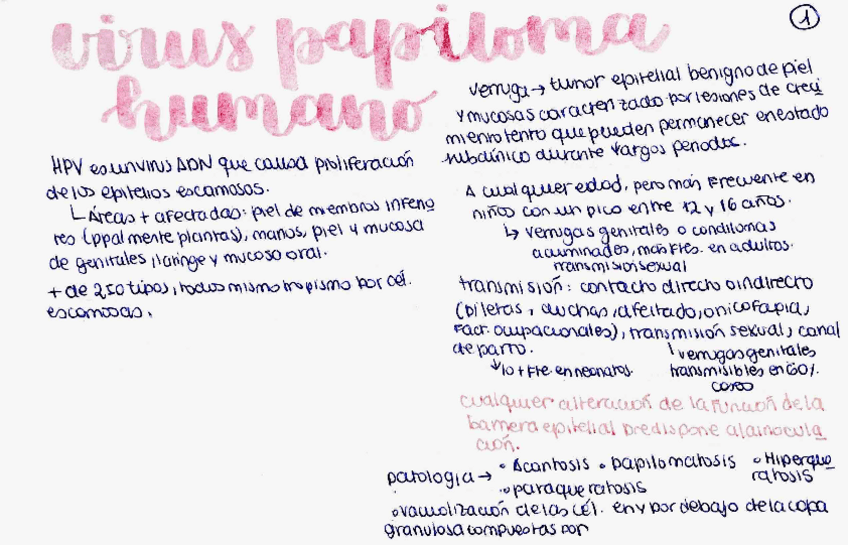 virus papiloma
humano
1
HPV es un virus ADN que causa proliferación
de los epitelios escamosos.
↳ Áreas + afectadas: piel de miembros inferio
res (ppalmente plantas), manos, piel y mucosa
de genitales, laringe y mucosa oral.
+ de 250 tipos, todos mismo tropismo por cél.
escamosas.
Verruga → tumor epitelial benigno de piel
y mucosas caracterizado por lesiones de creci
miento lento que pueden permanecer en estado
subclínico durante largos periodos.
A cualquier edad, pero más frecuente en
niños con un pico entre 12 y 16 años.
↳ verrugas genitales o condilomas
acuminados, más fte. en adultos.
transmisión sexual
transmisión: contacto directo o indirecto
(piletas, duchas, afeitado, onicofagia,
fact. ocupacionales), transmisión sexual, canal
de parto.
↓ lo + fte. en neonatos.
↓ verrugas genitales
transmisibles en 60%.
casos
cualquier alteración de la función de la
barrera epitelial predispone a la inocula
ción.
patología → • Acantosis • papilomatosis • Hiperque
ratosis
• paraqueratosis
• vacuolización de las cél. en y por debajo de la capa
granulosa compuestas por